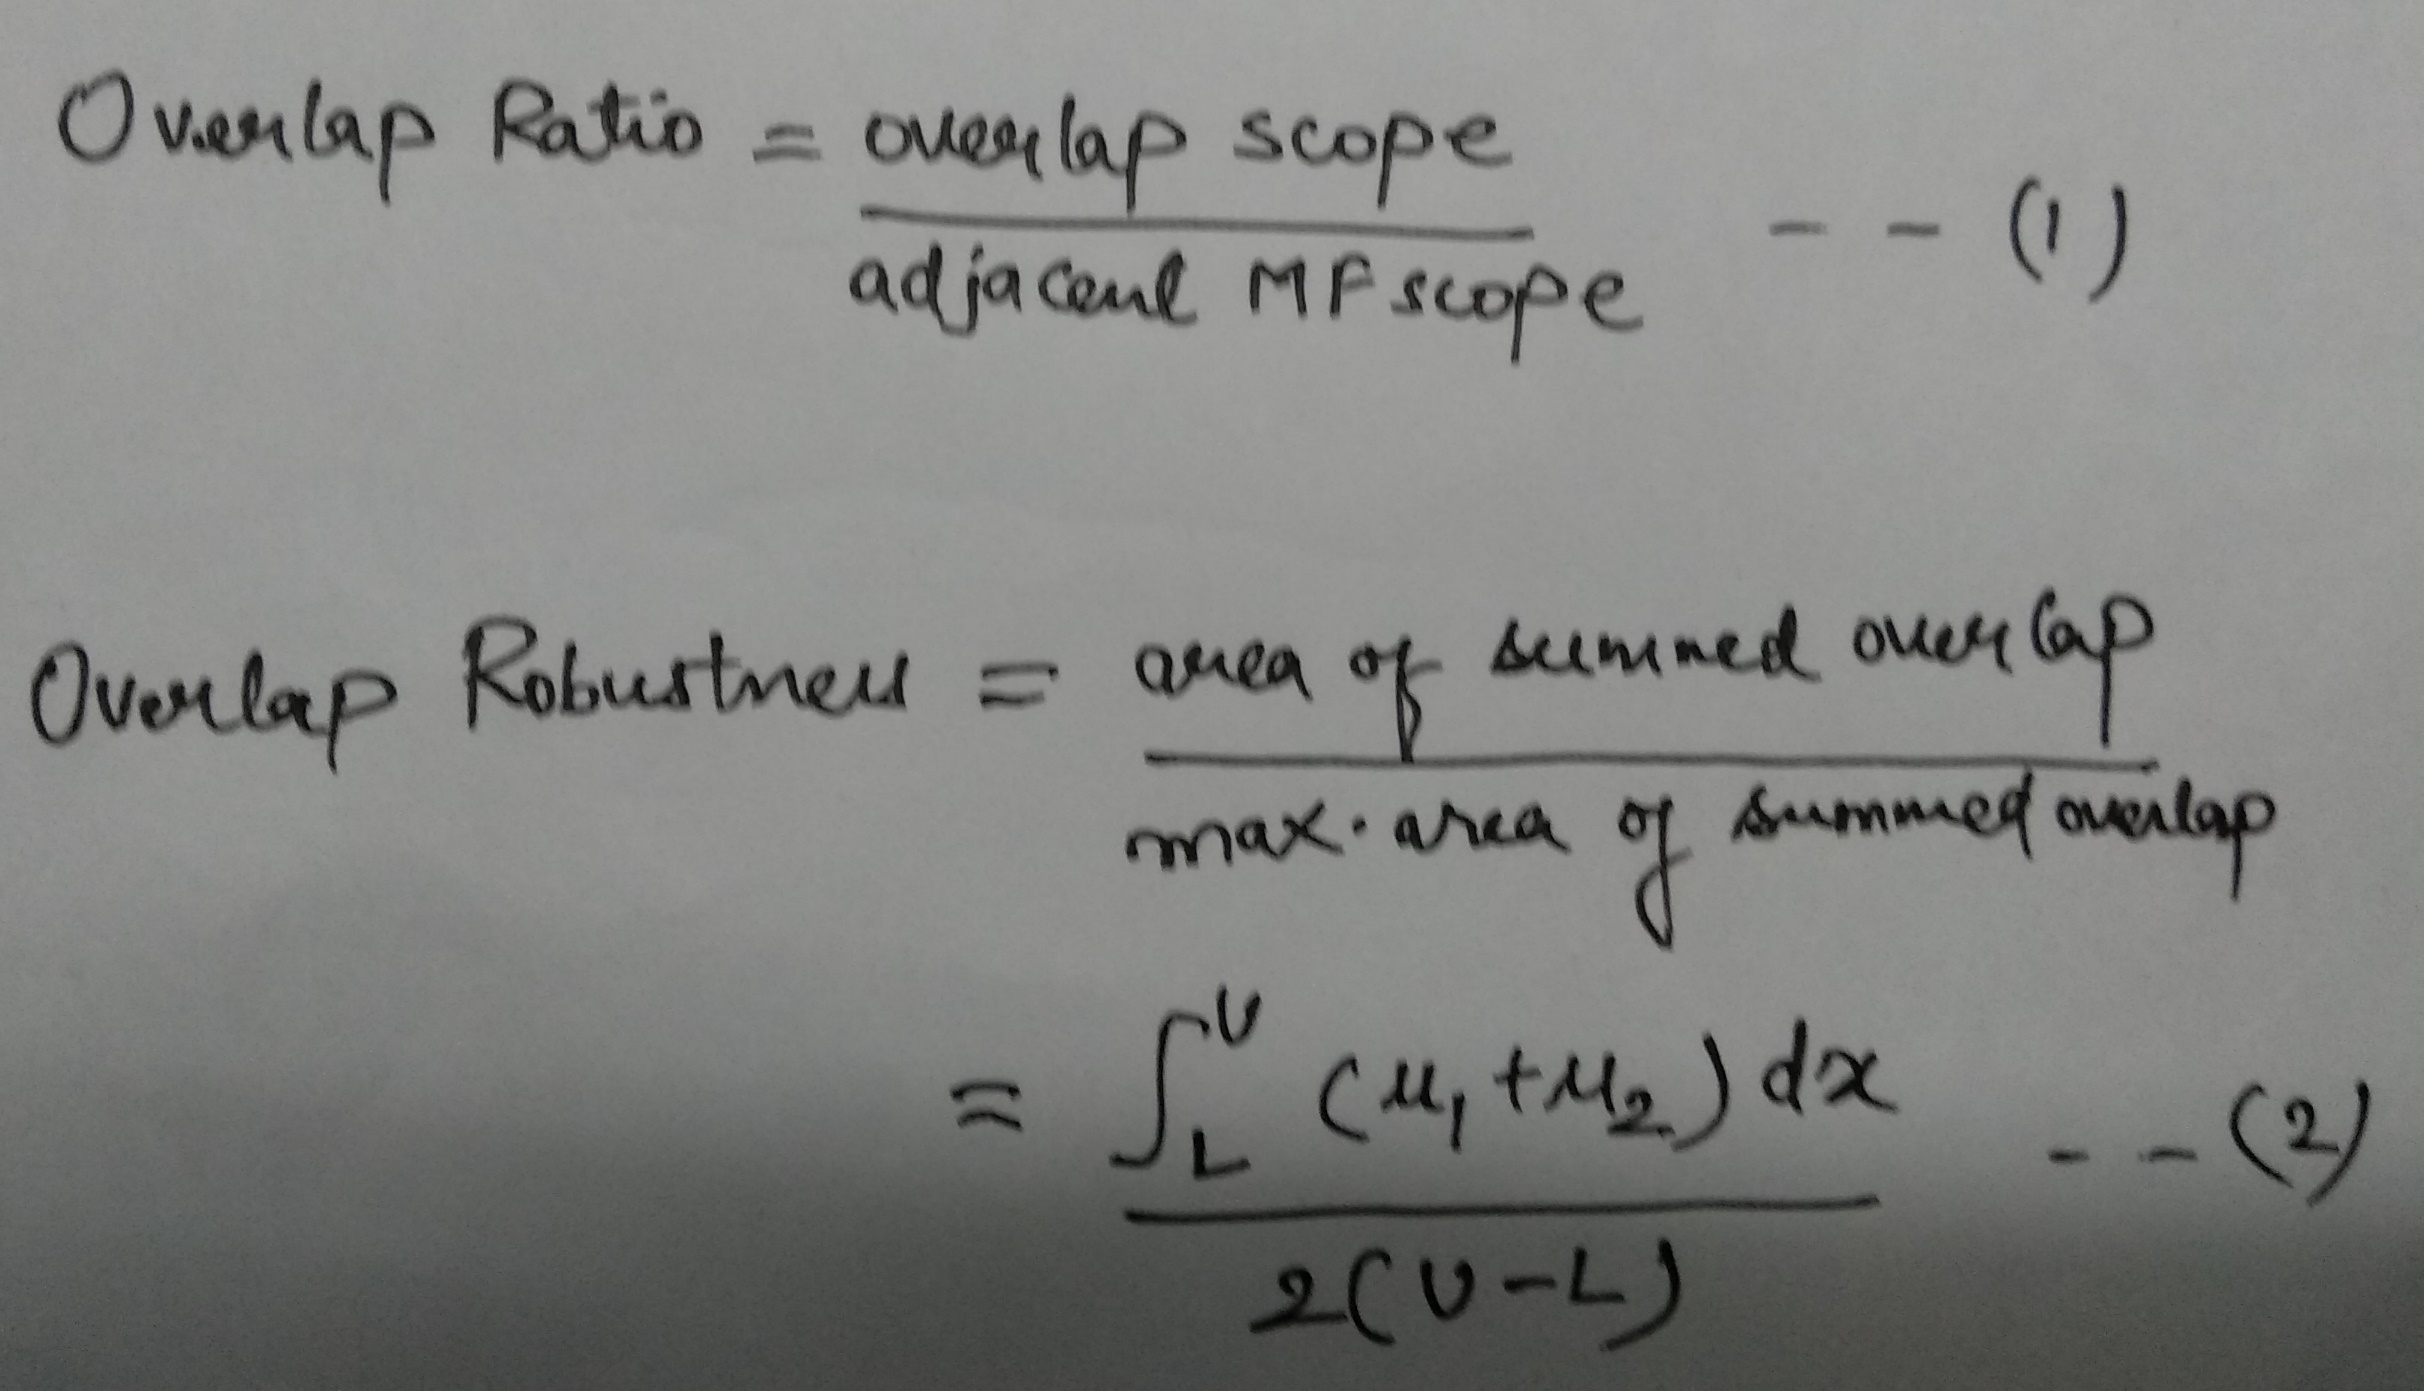 Overlap Ratio = overlap scope
adjacent MF scope -- (1)
Overlap Robustness = area of summed overlap
max. area of summed overlap
= ∫_L^U (μ₁ + μ₂) dx
2(U-L) -- (2)